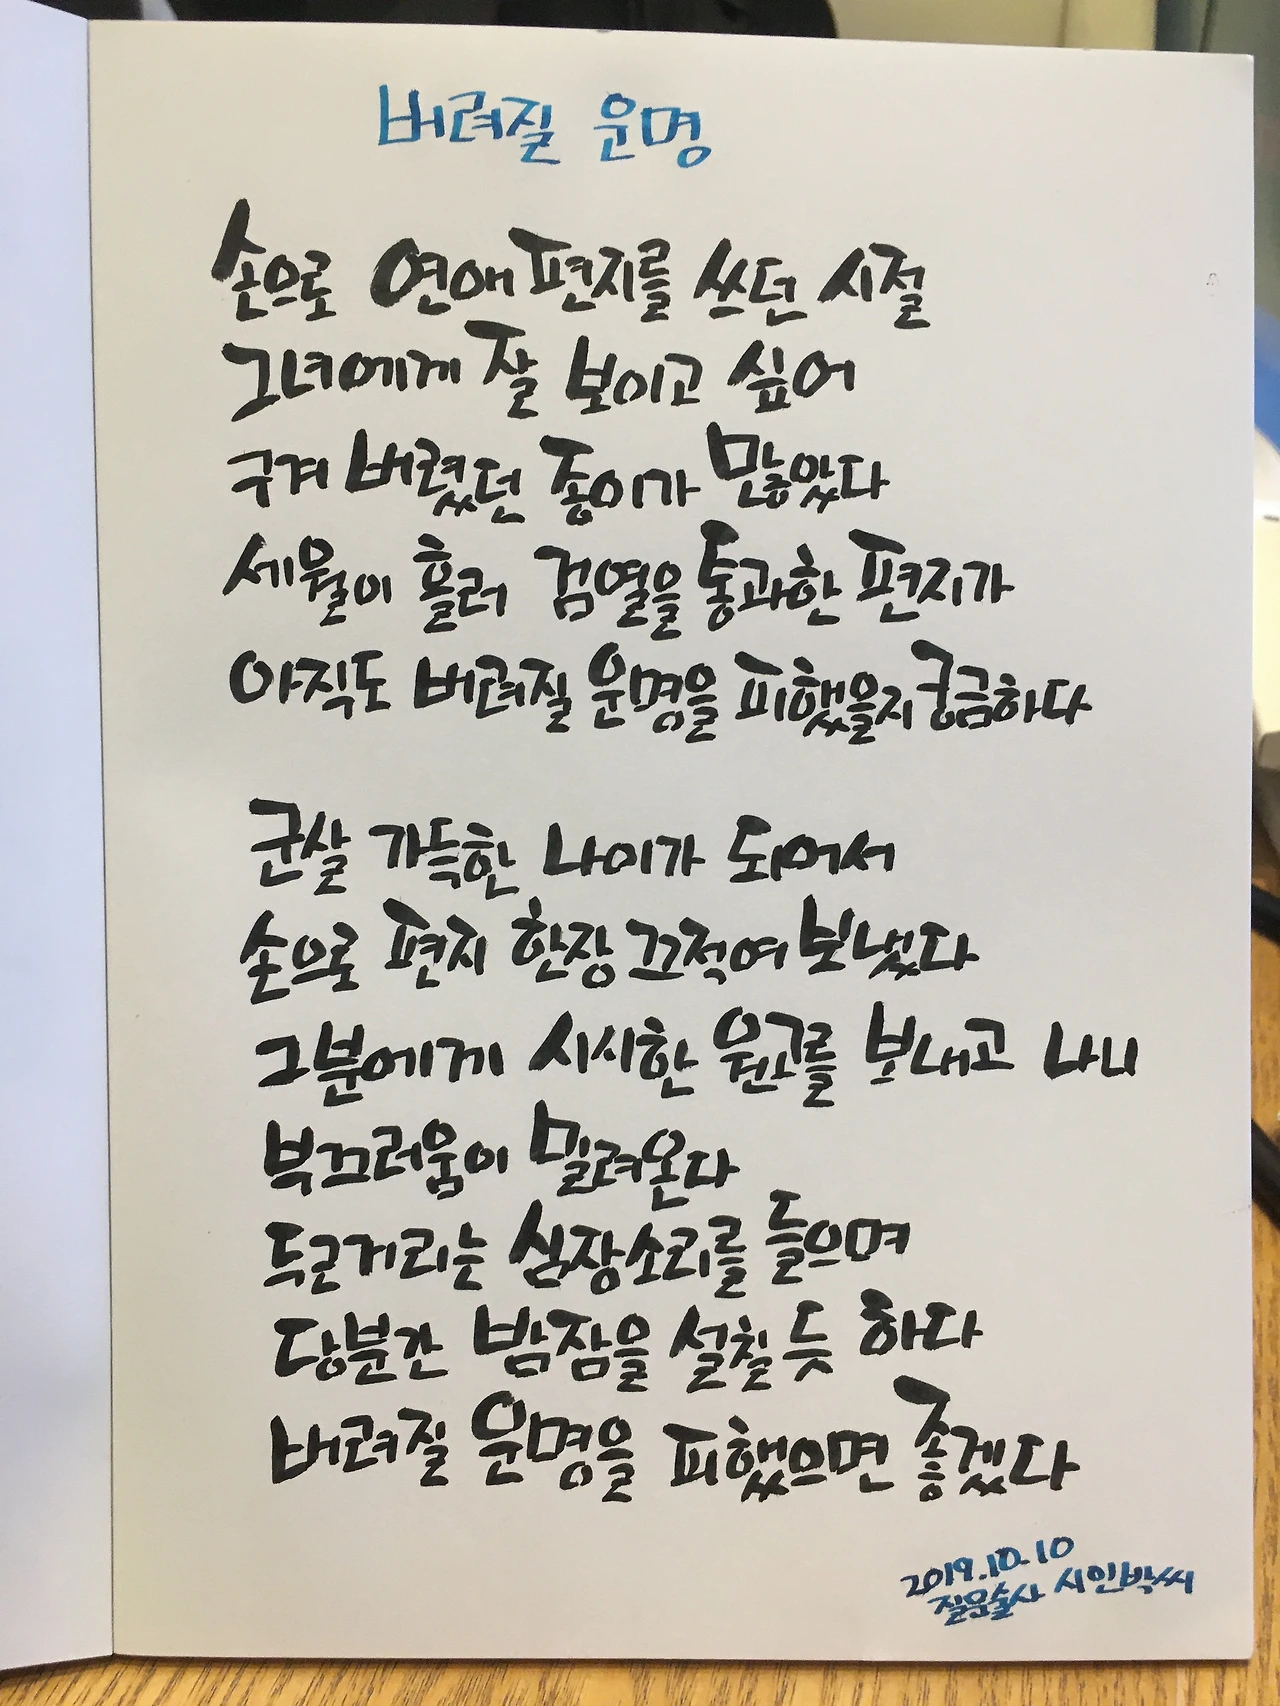 버려질 운명
손으로 연애편지를 쓰던 시절
그녀에게 잘 보이고 싶어
구겨 버렸던 종이가 많았다
세월이 흘러 검열을 통과한 편지가
아직도 버려질 운명을 피했을지 궁금하다
군살 가득한 나이가 되어서
손으로 편지 한장 끄적여 보냈다
그분에게 시시한 원고를 보내고 나니
부끄러움이 밀려온다
두근거리는 심장소리를 들으며
당분간 밤잠을 설칠듯 하다
버려질 운명을 피했으면 좋겠다
2019.10.10
질문술사 시인박씨